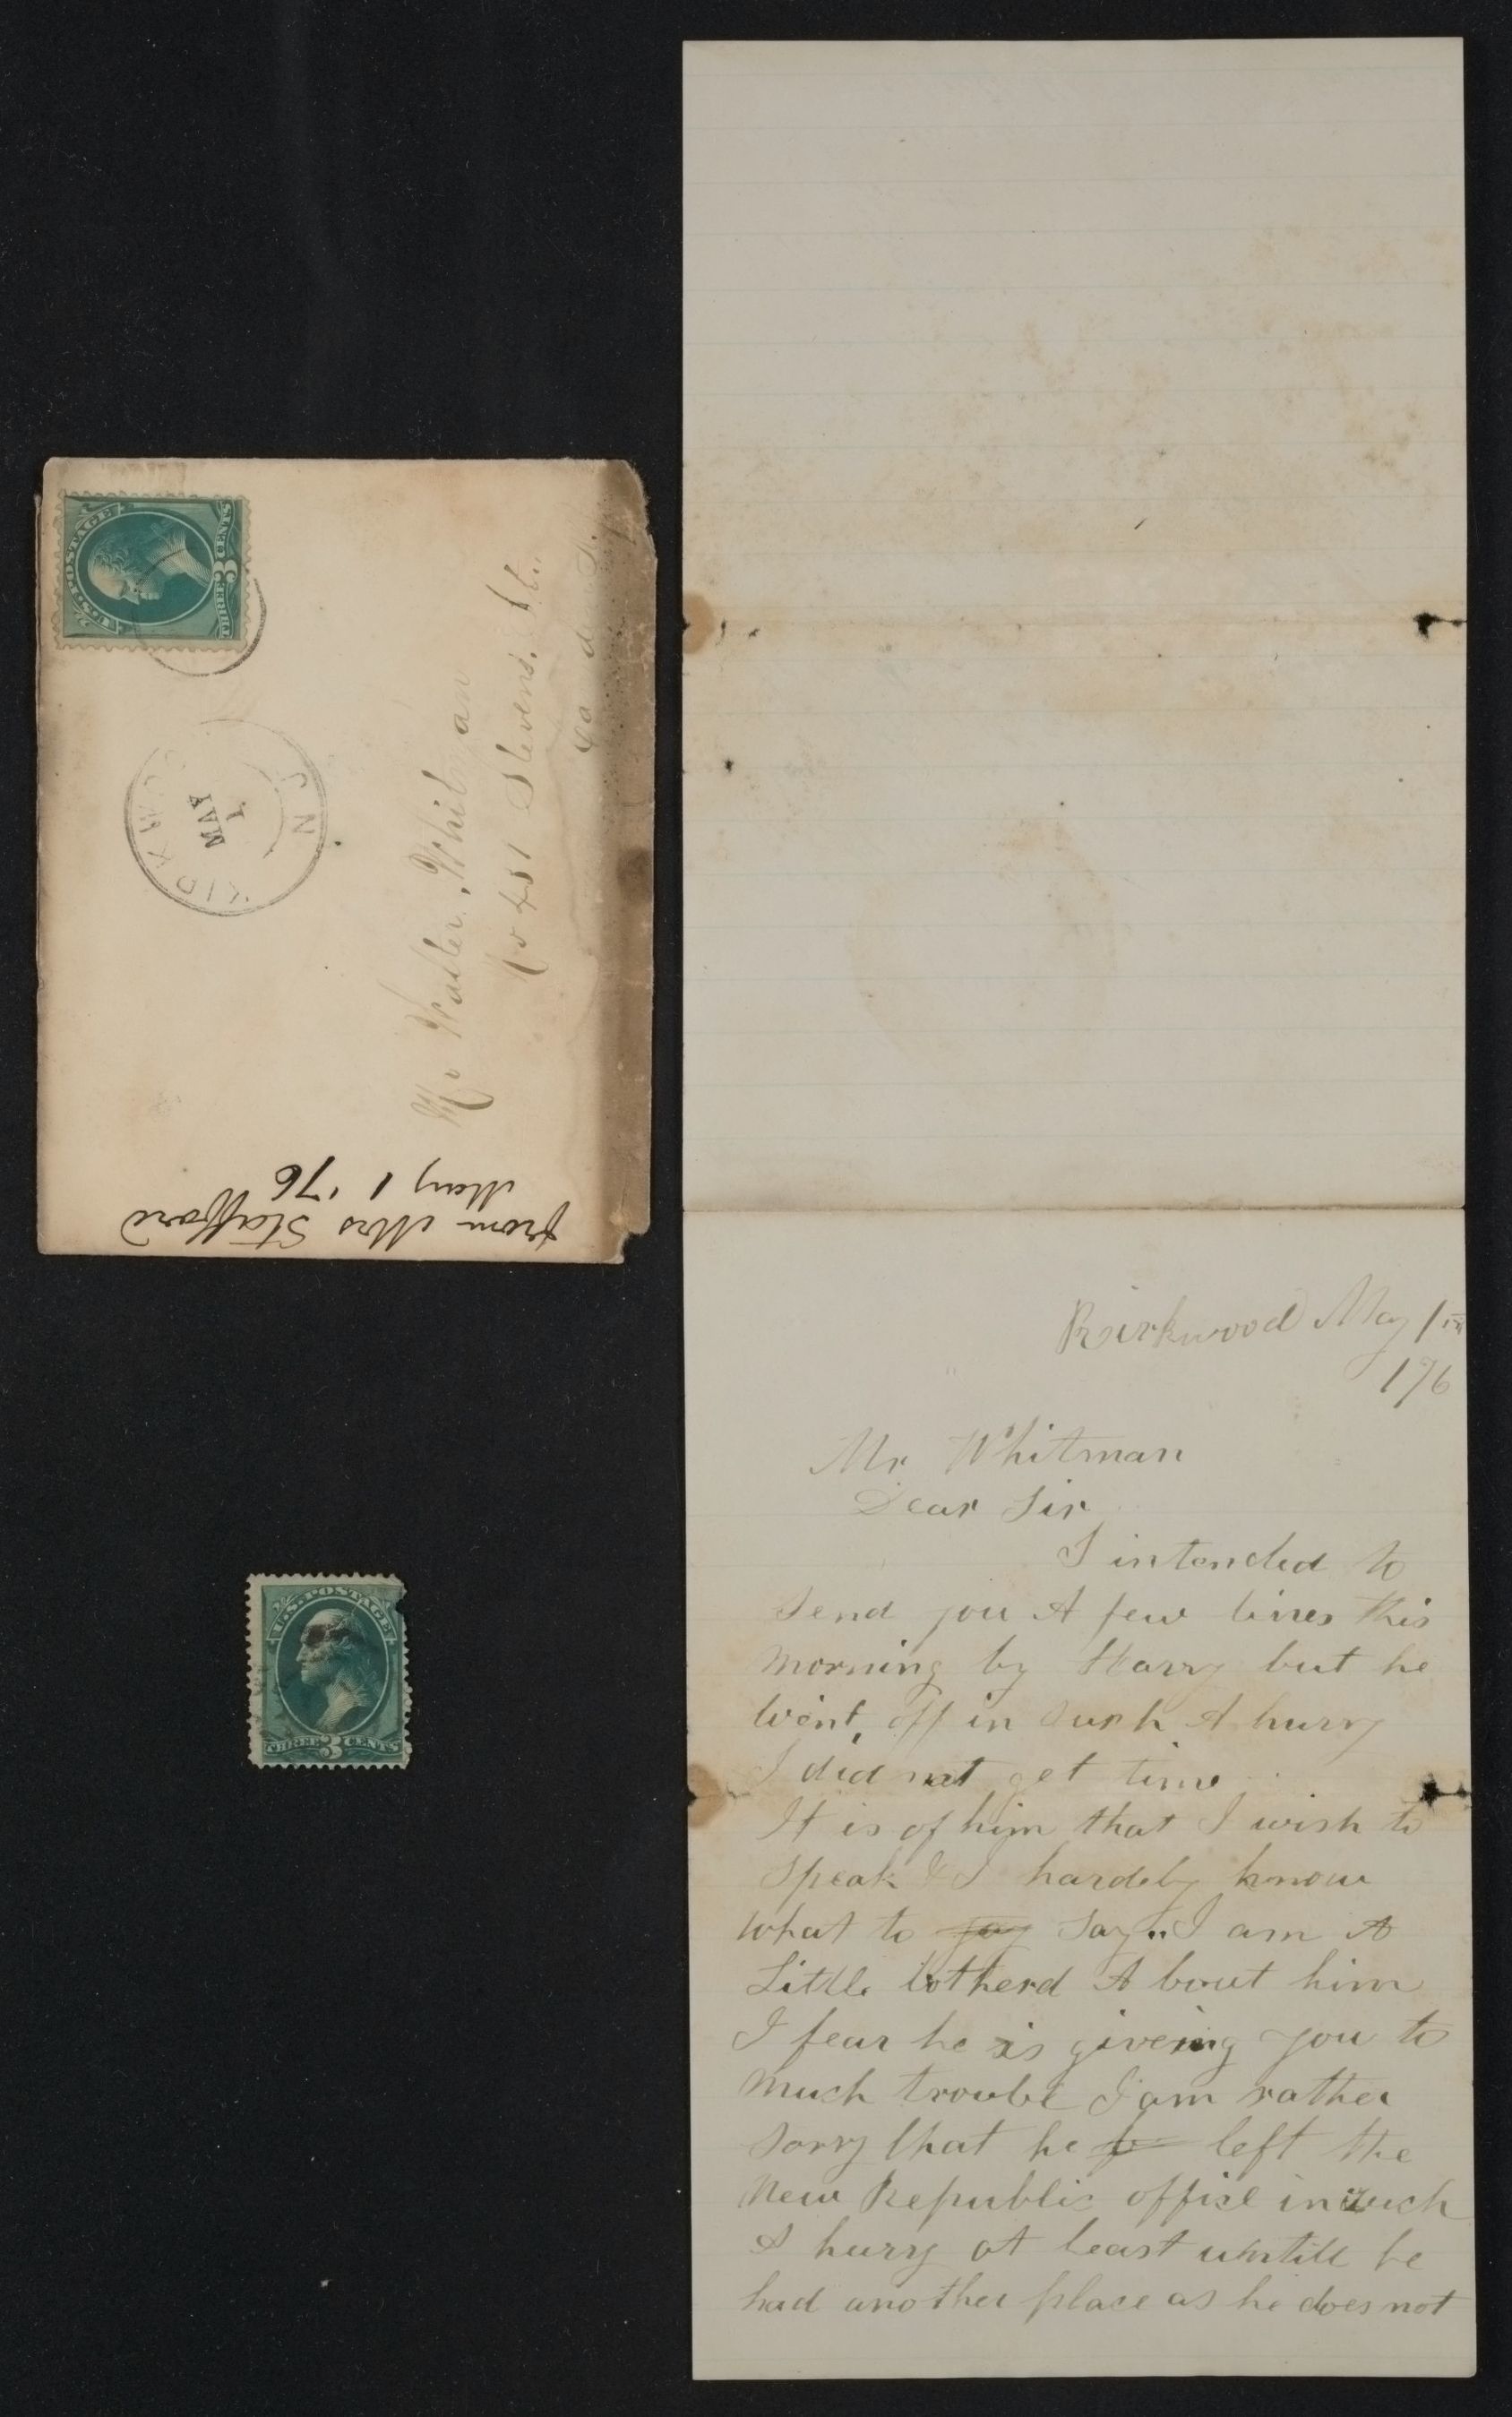 U.S. POSTAGE
THREE 3 CENTS
KIRKWOOD
MAY
1
N.J.
Mr Walter Whitman
No 431 Stevens. St..
Camden
from Mrs Stafford
May 1 '76
U.S. POSTAGE
THREE 3 CENTS
Kirkwood May 1st
176
Mr Whitman
Dear Sir
I intended to
send you A few lines this
morning by Harry but he
went, off in such A hurry
I did not get time
It is of him that I wish to
speak & I hardely know
what to say say.. I am A
Little botherd A bout him
I fear he is giveing you to
much trouble I am rather
sorry that he left the
New Republic office in such
A hurry at least untill he
had another place as he does not